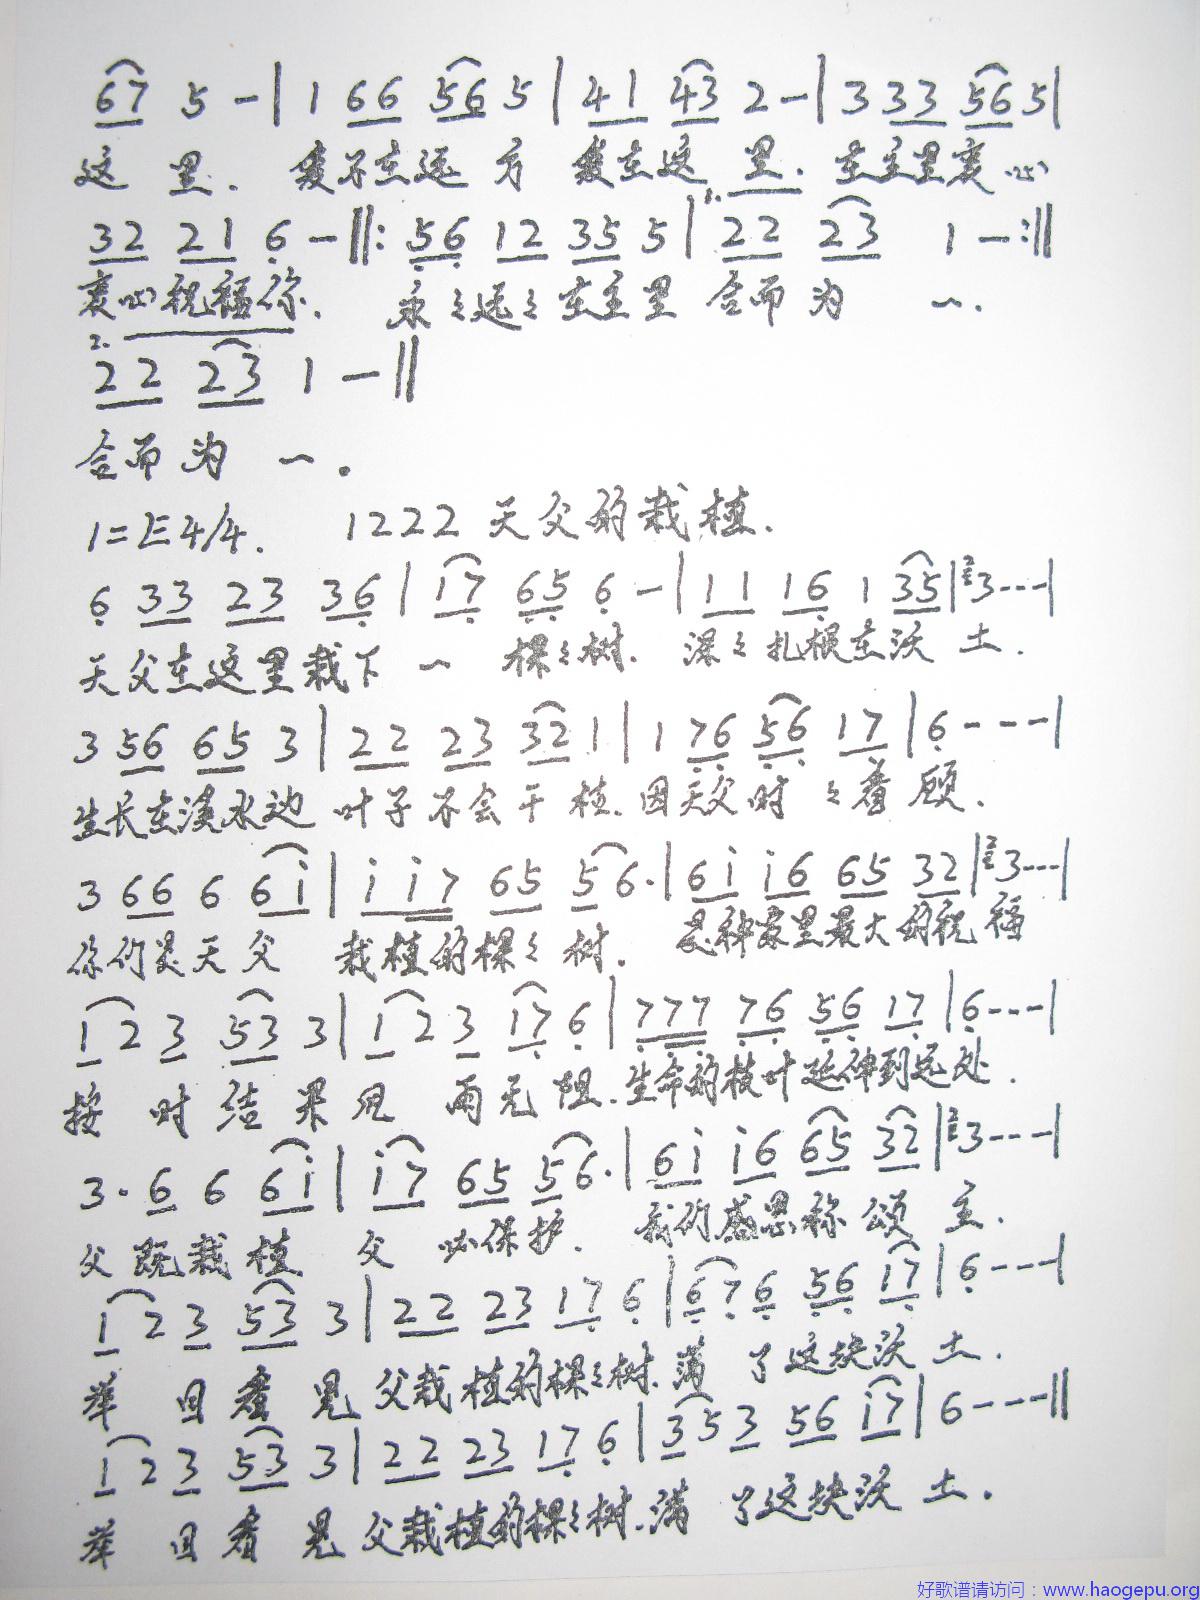 67 5 - | 1 66 56 5 | 41 43 2 - | 3 33 56 5 |
这 里. 爱不在远 方 爱在这 里. 在主里衷心
32 21 6 - ‖: 56 12 35 5 | 1. 22 23 1 - :‖
衷心祝福你. 永々远々在主里 合而为 一.
2. 22 23 1 - ‖
合而为 一.
1=E 4/4. 1222 天父的栽植.
6 33 23 36 | 17 65 6 - | 11 16 1 35 | 3 - - - |
天父在这里栽下 一 棵々树. 深々扎根在沃 土.
3 56 65 3 | 22 23 32 1 | 1 76 56 17 | 6 - - - |
生长在溪水边 叶子不会干枯. 因天父时 々看 顾.
3 66 6 6i | i i7 65 5 6. | 6i i6 65 32 | 3 - - - |
你们是天父 栽植的棵々 树. 是神家里最大的祝福
1 2 3 53 3 | 1 2 3 17 6 | 777 76 56 17 | 6 - - - |
按 时 结 果 儿 两无阻. 生命的枝叶延伸到远处.
3. 6 6 6i | i7 65 5 6. | 6i i6 65 32 | 3 - - - |
父 既栽 植 父 必保护. 我们感恩称 颂 主.
1 2 3 53 3 | 22 23 17 6 | 6 7 6 56 17 | 6 - - - |
举 目 看 见 父栽植的棵々树. 满 了这块沃 土.
1 2 3 53 3 | 22 23 17 6 | 3 5 3 56 i7 | 6 - - - ‖
举 目 看 见 父栽植的棵々树. 满 了这块沃 土.
好歌谱请访问：www.haogepu.org